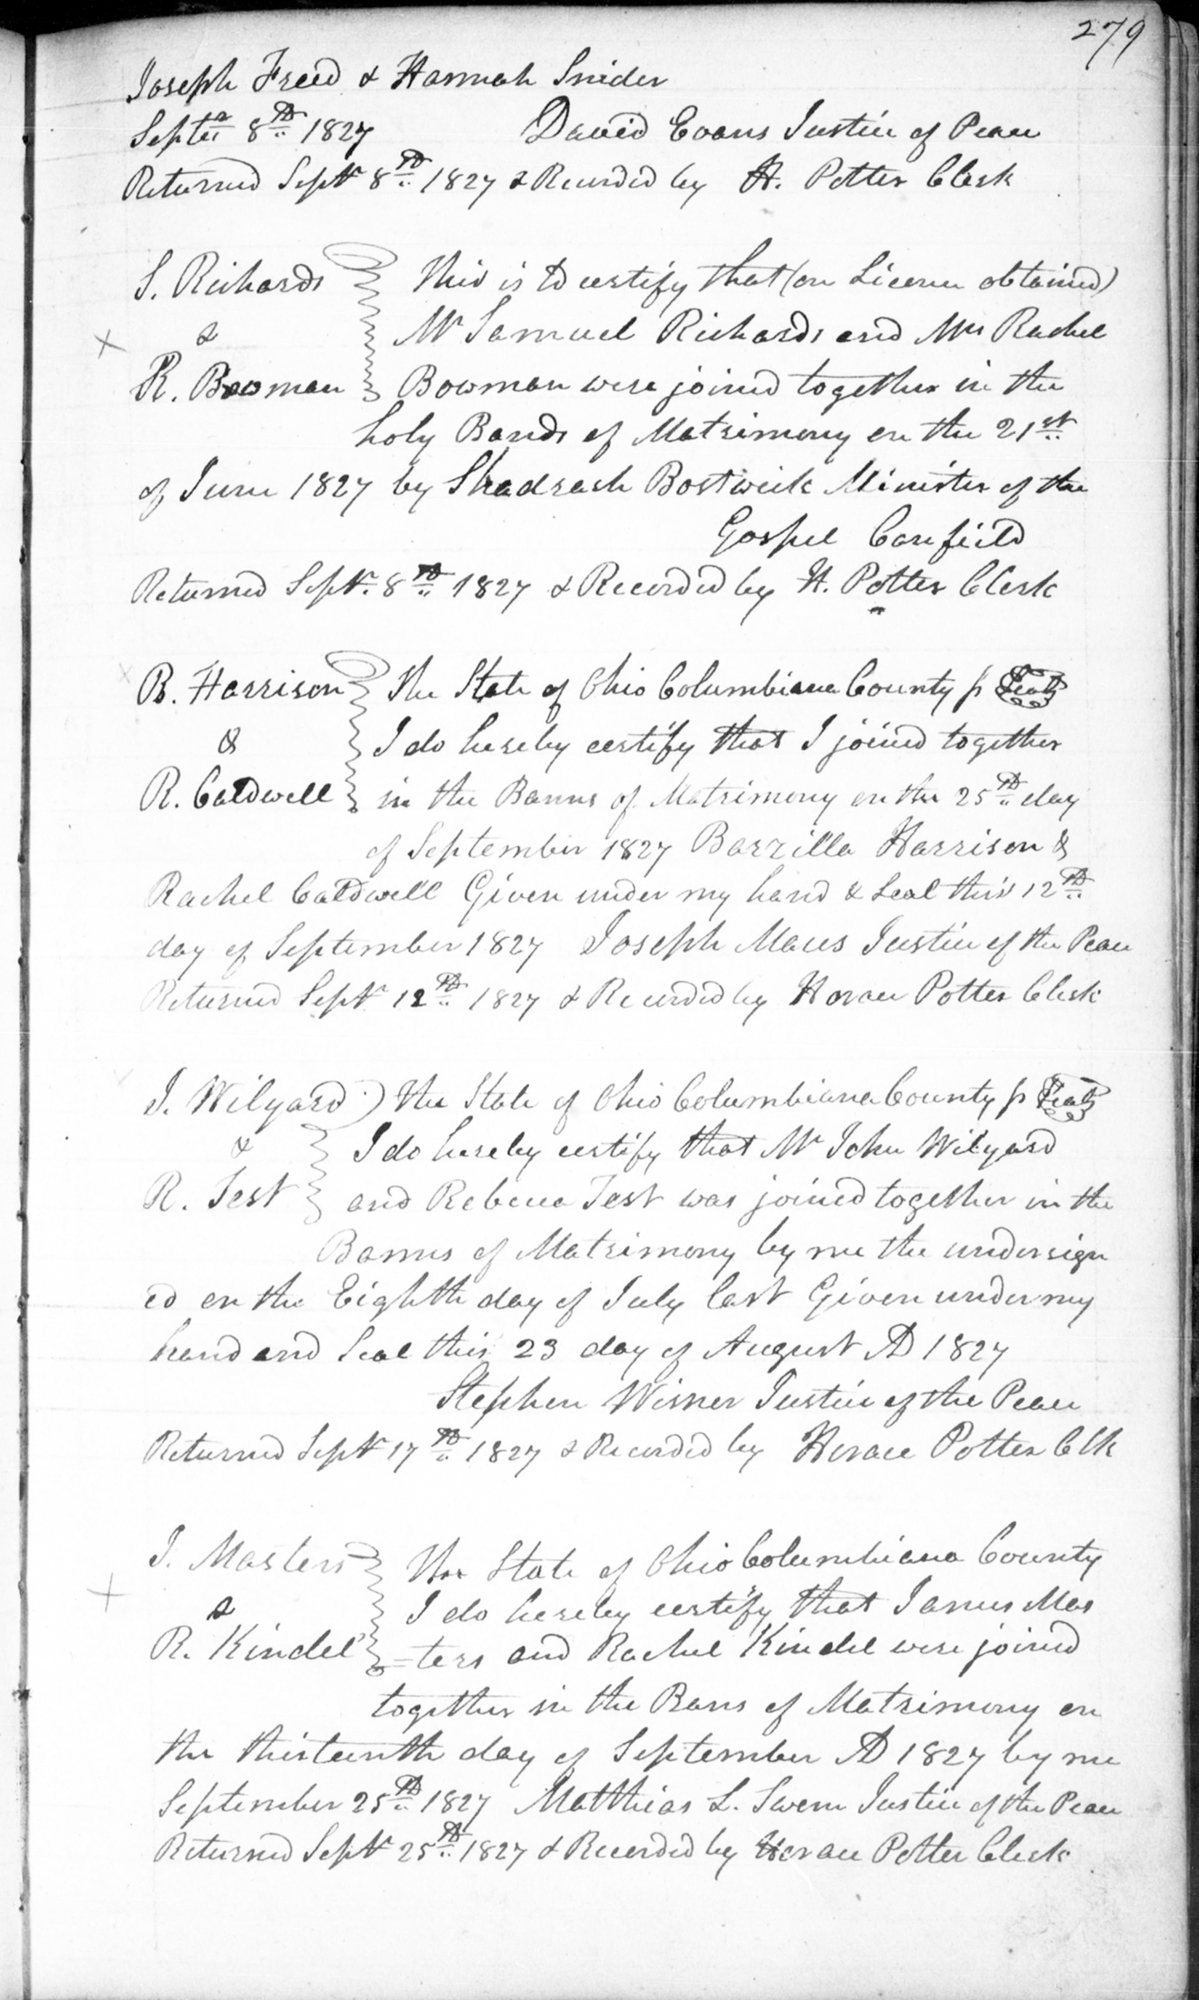 279
Joseph Freed & Hannah Snider
Septr 8th 1827 David Evans Justice of Peace
Returned Septr 8th 1827 & Recorded by H. Potter Clerk
S. Richards This is to certify that (on Licence obtained)
& Mr Samuel Richards and Mrs Rachel
R. Bowman Bowman were joined together in the
holy Bands of Matrimony on the 21st
of June 1827 by Shadrach Bostwick Minister of the
Gospel Canfield
Returned Septr. 8th 1827 & Recorded by H. Potter Clerk
B. Harrison The State of Ohio Columbiana County ss Seal
& I do hereby certify that I joined together
R. Caldwell in the Banns of Matrimony on the 25th day
of September 1827 Barzilla Harrison &
Rachel Caldwell Given under my hand & Seal this 12th
day of September 1827 Joseph Maus Justice of the Peace
Returned Septr 12th 1827 & Recorded by Horace Potter Clerk
J. Wilyard The State of Ohio Columbiana County ss Seal
& I do hereby certify that Mr John Wilyard
R. Test and Rebecca Test was joined together in the
Banns of Matrimony by me the undersign
ed on the Eighth day of July last Given under my
hand and Seal this 23 day of August AD 1827
Stephen Wisner Justice of the Peace
Returned Septr 17th 1827 & Recorded by Horace Potter Clk
J. Masters The State of Ohio Columbiana County
& I do hereby certify that James Mas
R. Kindel =ters and Rachel Kindel were joined
together in the Bans of Matrimony on
the thirteenth day of September AD 1827 by me
September 25th 1827 Matthias L. Swem Justice of the Peace
Returned Septr 25th 1827 & Recorded by Horace Potter Clerk